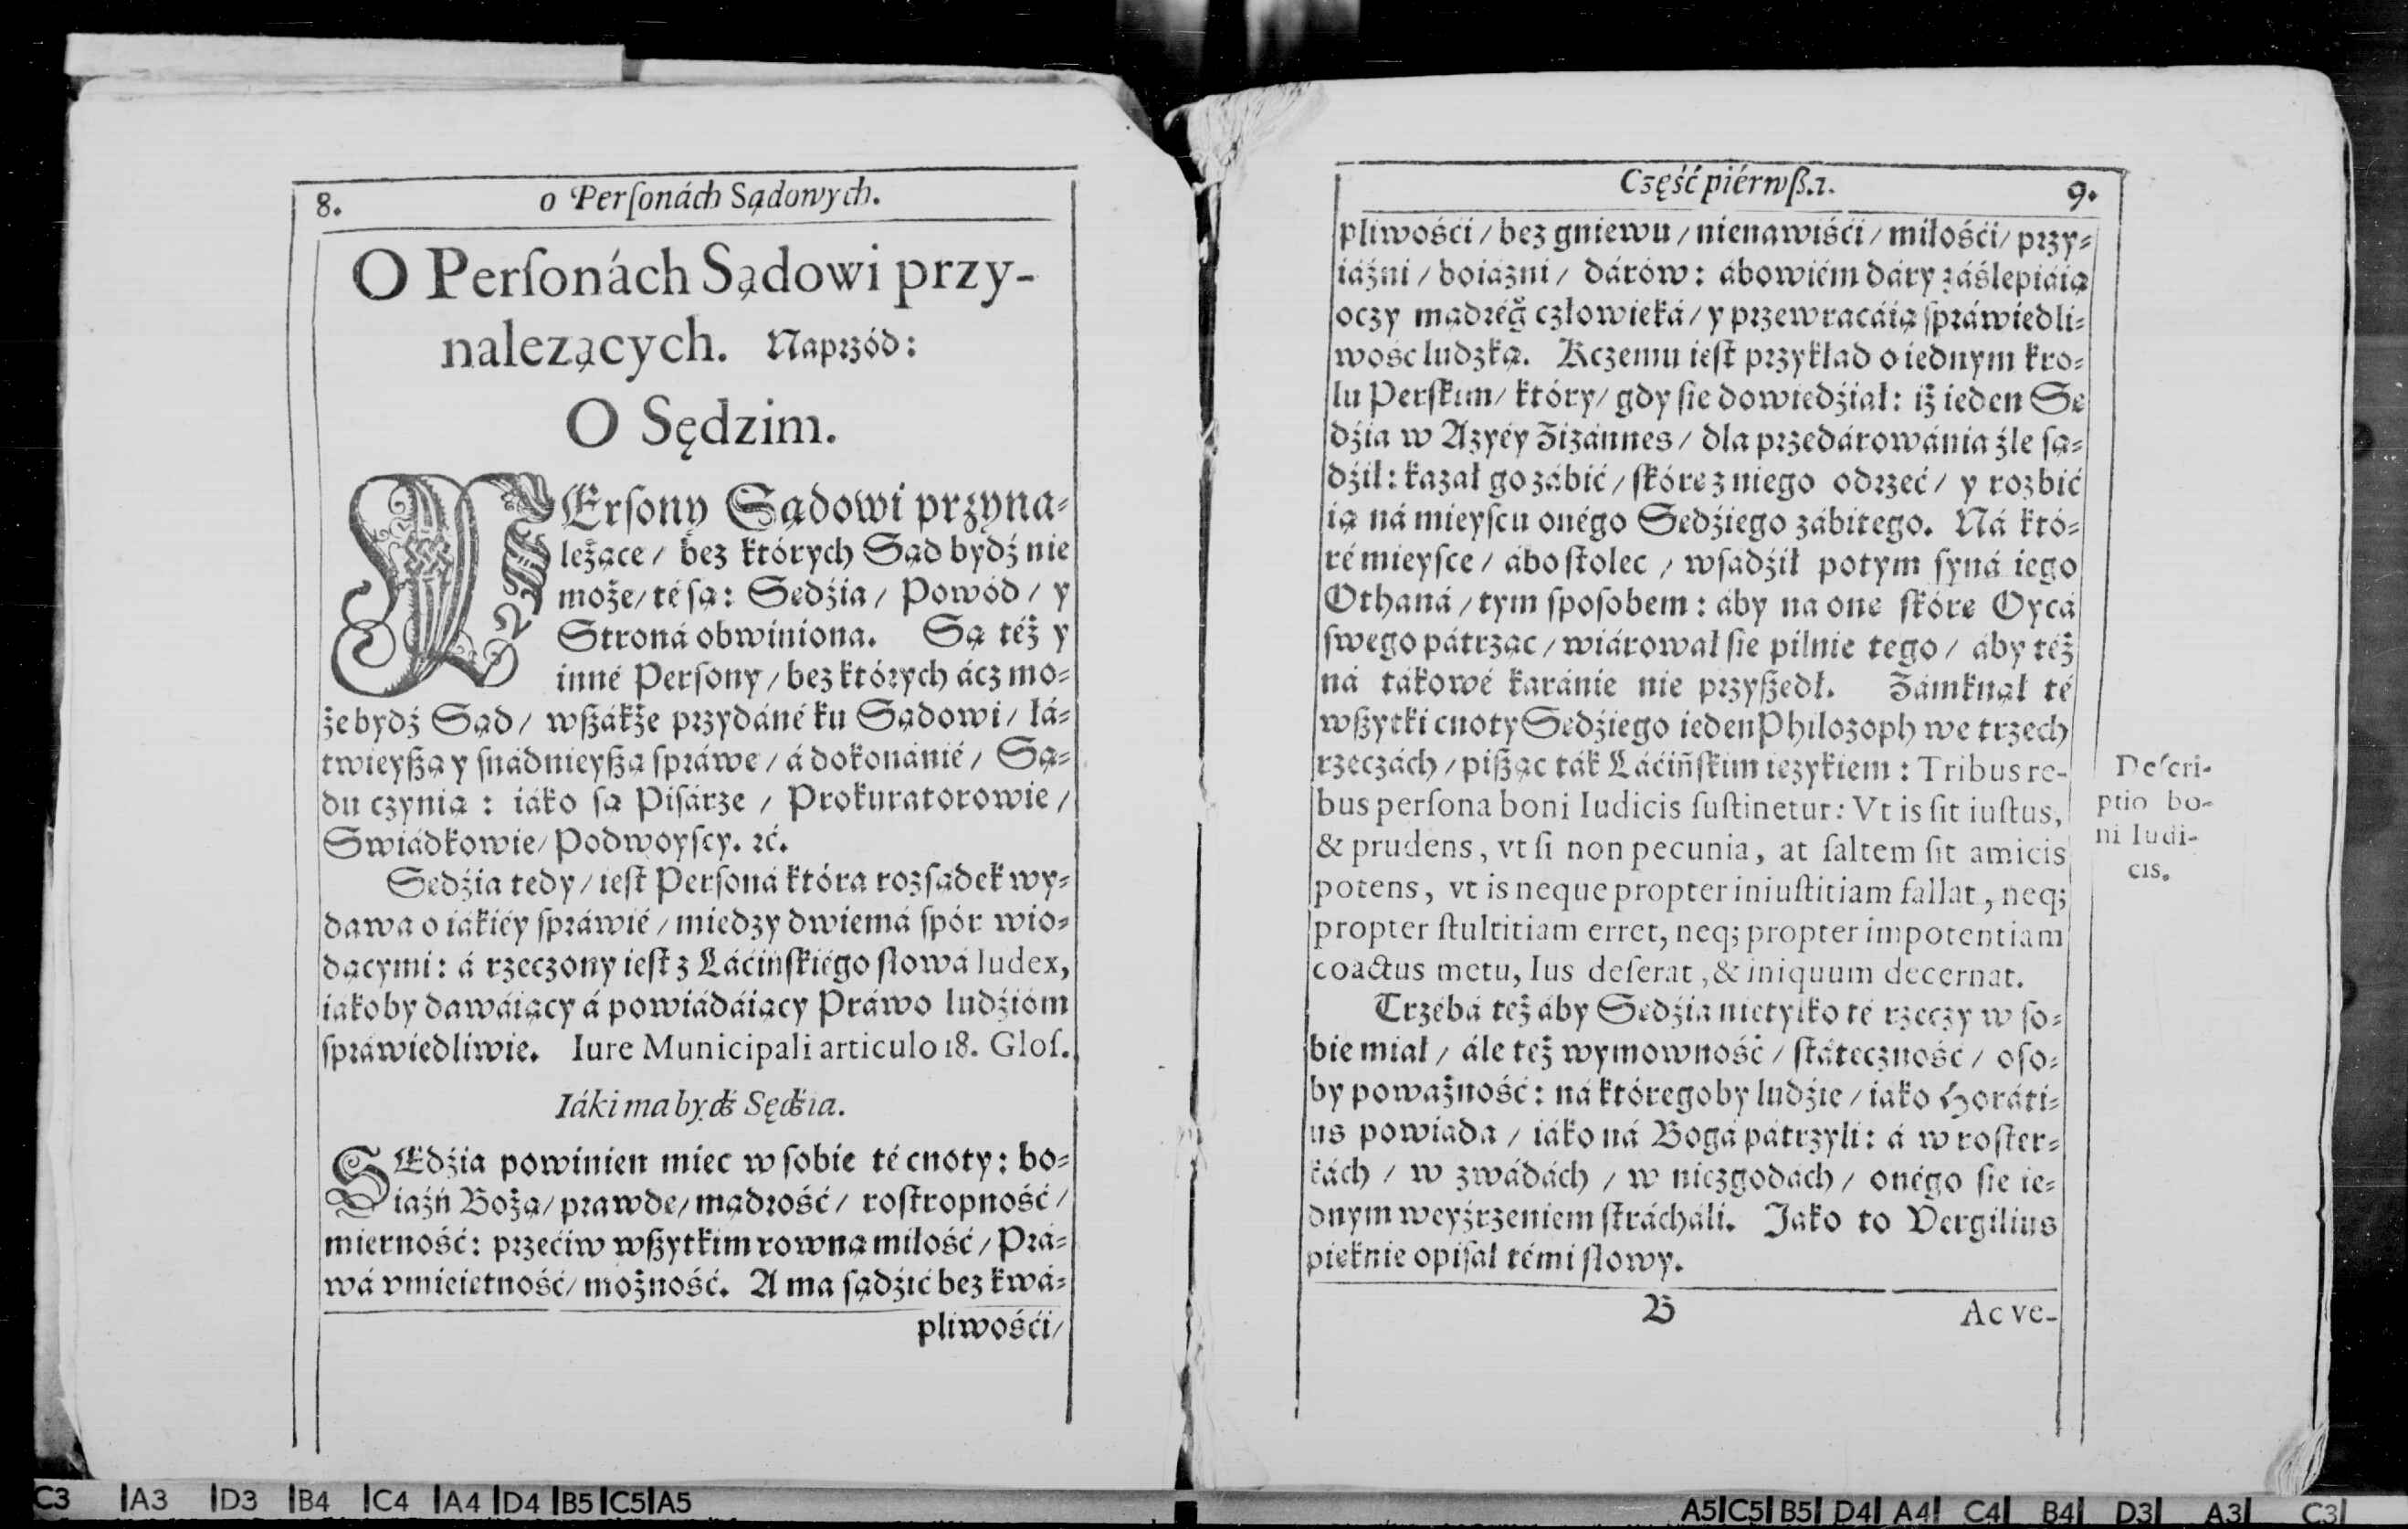 8.
o Perſonách Sądowych.
O Perſonách Sądowi przy-
nalezących. Naprzód:
O Sędzim.
PErſony Sądowi przyna-
leżące/ bez których Sąd bydź nie
może/ té ſą: Sędźia/ Powód/ y
Stroná obwiniona. Są téż y
inné Perſony/ bez których ácz mo-
że bydź Sąd/ wßákże przydáné ku Sądowi/ łá-
twieyßą y ſnádnieyßą ſpráwę/ á dokonánié/ Są-
du czynią: iáko ſą Piſárze/ Prokuratorowie/
Swiádkowie/ Podwoyſcy. ꝛć.
Sędźia tedy/ ieſt Perſoná która rozſądek wy-
dawa o iákiéy ſpráwié/ miedzy dwiemá ſpór wio-
dącymi: á rzeczony ieſt z Łáćińſkiégo ſłowá Iudex,
iakoby dawáiący á powiádáiący Práwo ludźióm
ſpráwiedliwie. Iure Municipali articulo 18. Gloſ.
Iáki ma bydź Sędźia.
SĘdźia powinien miec w ſobie té cnoty: bo-
iaźń Bożą/ prawdę/ mądrość/ roſtropność/
mierność: przećiw wßytkim rowną miłość/ Prá-
wá vmieiętność/ możność. A ma ſądźić bez kwá-
pliwośći/
Część piérwßa.
9.
pliwośći/ bez gniewu/ nienawiśći/ miłośći/ przy-
iáźni/ boiáźni/ dárów: ábowiém dáry záślepiáią
oczy mądrég̃ człowieká/ y przewracáią ſpráwiedli-
wość ludzką. Kczemu ieſt przykład o iednym kro-
lu Perſkim/ który/ gdy ſie dowiedźiał: iż ieden Sę
dźia w Azyéy Zizánnes/ dla przedárowánia źle ſą-
dźił: kazał go zábić/ ſkórę z niego odrzeć/ y rozbić
ią ná mieyſcu onégo Sędźiego zábitego. Ná któ-
ré mieyſce/ ábo ſtolec/ wſadźił potym ſyná iego
Othaná/ tym ſpoſobem: áby na onę ſkórę Oycá
ſwego pátrząc/ wiárował ſie pilnie tego/ áby téż
ná tákowé karánie nie przyßedł. Zámknął té
wßytki cnoty Sędźiego ieden Philozoph we trzech
rzeczách/ pißąc ták Łáćińſkim ięzykiem: Tribus re-
bus perſona boni Iudicis ſuſtinetur: Vt is ſit iuſtus,
& prudens, vt ſi non pecunia, at ſaltem ſit amicis
potens, vt is neque propter iniuſtitiam fallat, neq;
propter ſtultitiam erret, neq; propter impotentiam
coactus metu, Ius deſerat, & iniquum decernat.
Deſcri-
ptio bo-
ni Iudi-
cis.
Trzébá też áby Sędźia nietylko té rzeczy w ſo-
bie miał/ ále też wymowność/ ſtáteczność/ oſo-
by poważność: ná któregoby ludźie/ iako Horáti-
us powiada/ iáko ná Bogá pátrzyli: á w roſter-
kách/ w zwádách/ w niezgodách/ onégo ſie ie-
dnym weyźrzeniem ſtráchali. Jako to Vergilius
pięknie opiſał témi ſłowy.
B
Ac ve-
C3 A3 D3 B4 C4 A4 D4 B5 C5 A5
A5 C5 B5 D4 A4 C4 B4 D3 A3 C3